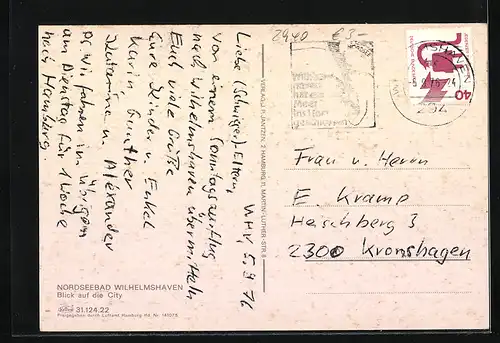 2940 €3-
WHV 5.9.76
Liebe (Schwieger) Eltern,
von einem Sonntagsausflug
nach Wilhelmshaven übermitteln
Euch viele Grüße
Eure Kinder u. Enkel
Karin Günther
Katharina u. Alexander
PS. Wir fahren im übrigen
am Dienstag für 1 Woche
nach Hamburg.
NORDSEEBAD WILHELMSHAVEN
Blick auf die City
31.124.22
Freigegeben durch Luftamt Hamburg
VERLAG J. JANTZEN, 2 HAMBURG
MARTIN-LUTHER-STR. 8
Meer
40
Frau u. Herrn
E. Kramp
Heischberg 3
2300 Kronshagen